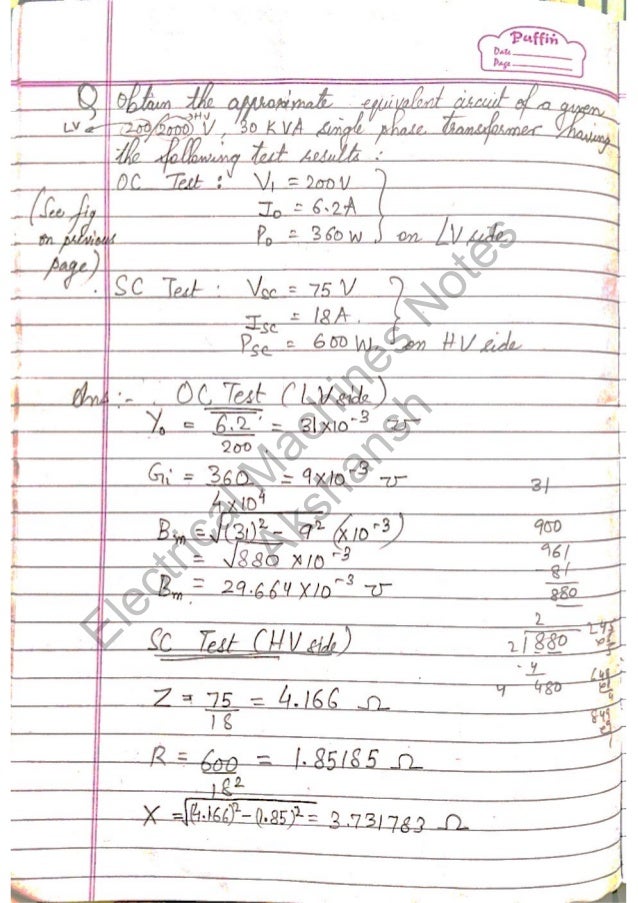 Puffin
Date
Page
Q Obtain the approximate equivalent circuit of a given
LV ← 200/2000 → HV V, 30 KVA single phase transformer having
the following test results :
OC Test : V₁ = 200V
I₀ = 6.2A
P₀ = 360 W } on LV side
(See fig
on previous
page)
SC Test : Vsc = 75 V
Isc = 18A.
Psc = 600 W } on HV side
Ans :- OC Test (LV side)
Y₀ = 6.2/200 = 31×10⁻³ ℧
Gi = 360/4×10⁴ = 9×10⁻³ ℧
Bm = √(31)² - 9² (×10⁻³)
= √880 ×10⁻³
Bm = 29.664×10⁻³ ℧
31
900
961
81
880
SC Test (HV side)
2
2 √880
-4
4 480
Z = 75/18 = 4.166 Ω
R = 600/18² = 1.85185 Ω
X = √(4.166)² - (1.85)² = 3.731783 Ω
Electrical Machines Notes
Akshansh